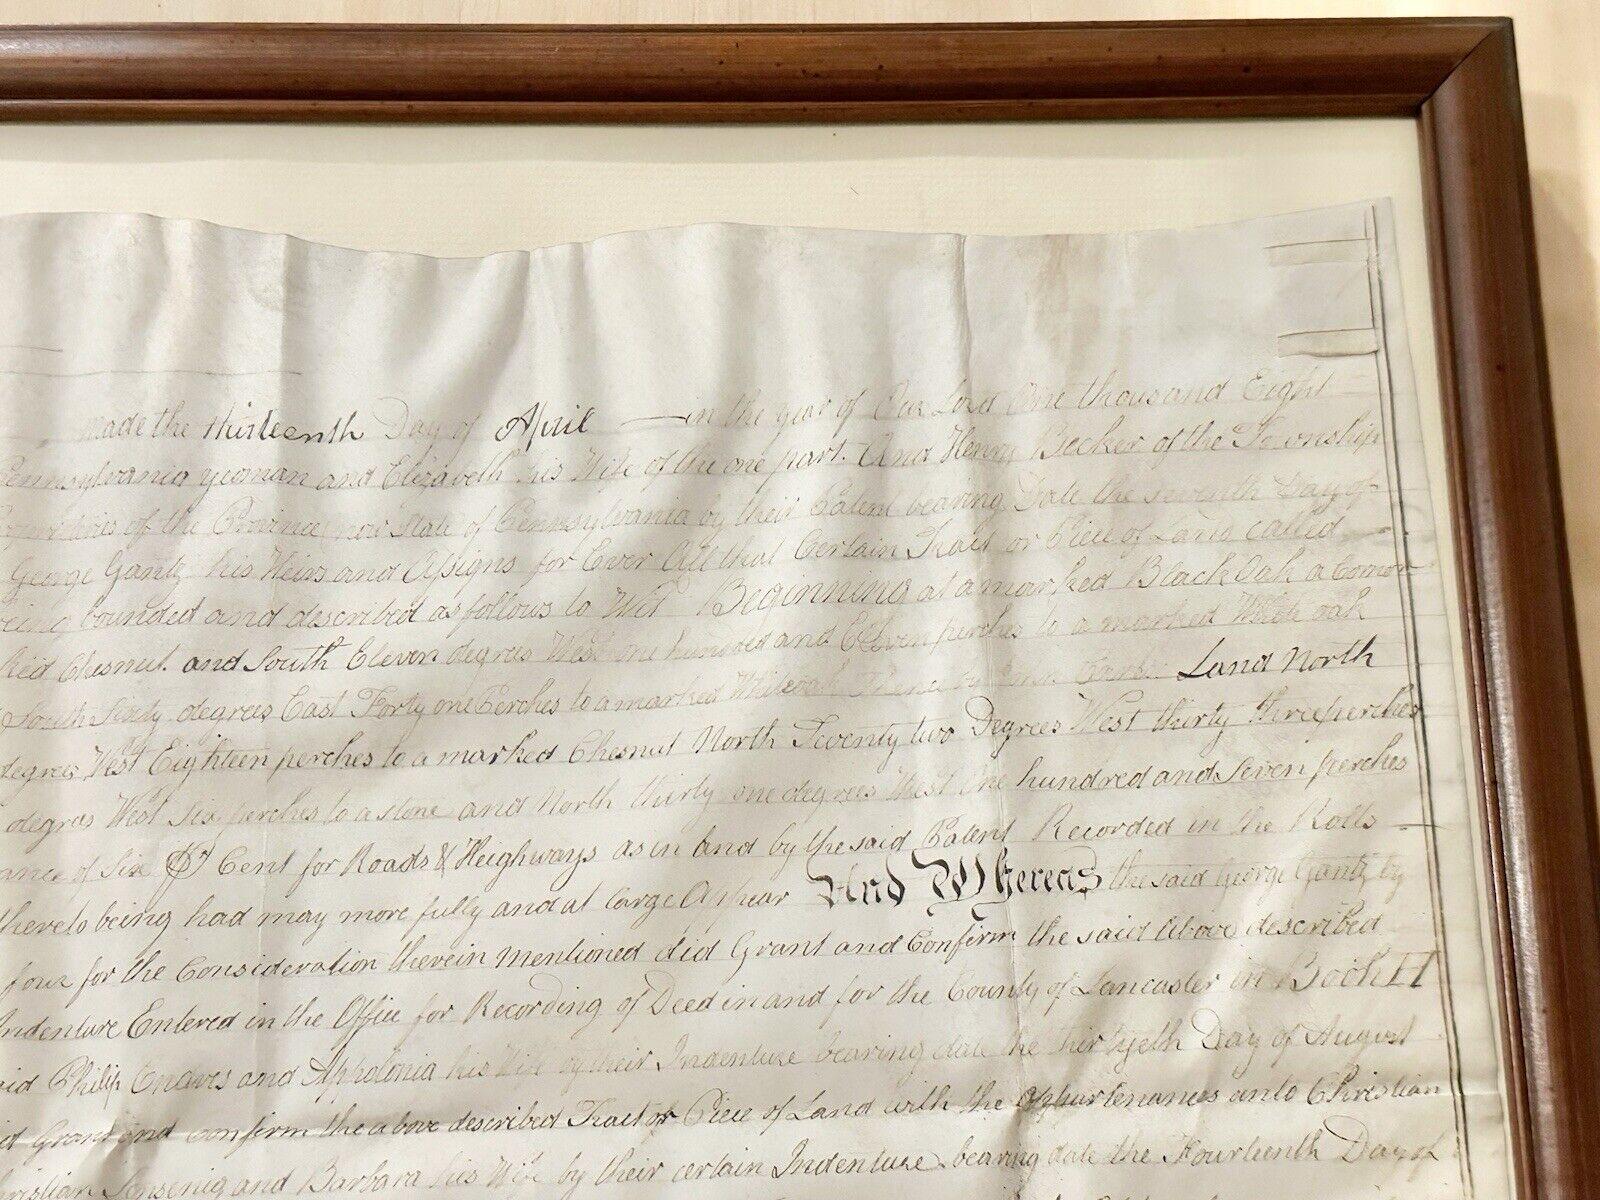 made the thirteenth Day of April in the year of Our Lord One thousand Eight
Pennsylvania yeoman and Elizabeth his Wife of the one part. And Henry Becker of the Township
of the Province now State of Pennsylvania by their Patent bearing Date the seventh Day of
George Gantz his Heirs and Assigns for Ever All that Certain Tract or Piece of Land called
being bounded and described as follows to Wit Beginning at a marked Black Oak a Corner
Chesnut and South Eleven degrees West one hundred and Eleven perches to a marked White oak
South Sixty degrees East Forty one Perches to a marked Whiteoak Thence by Land North
degrees West Eighteen perches to a marked Chesnut North Seventy two Degrees West thirty three perches
degrees West six perches to a stone and North thirty one degrees West One hundred and seven perches
of Six Cent for Roads & Heighways as in and by the said Patent Recorded in the Rolls
thereto being had may more fully and at large Appear And Whereas the said George Gantz by
four for the Consideration therein mentioned did Grant and Confirm the said Above described
Indenture Entered in the Office for Recording of Deed in and for the County of Lancaster in Book H
Philip and Appolonia his Wife by their Indenture bearing date the thirtyeth Day of August
Grant and confirm the above described Tract or Piece of Land with the Appurtenances unto Christian
Sensenig and Barbara his Wife by their certain Indenture bearing date the Fourteenth Day of